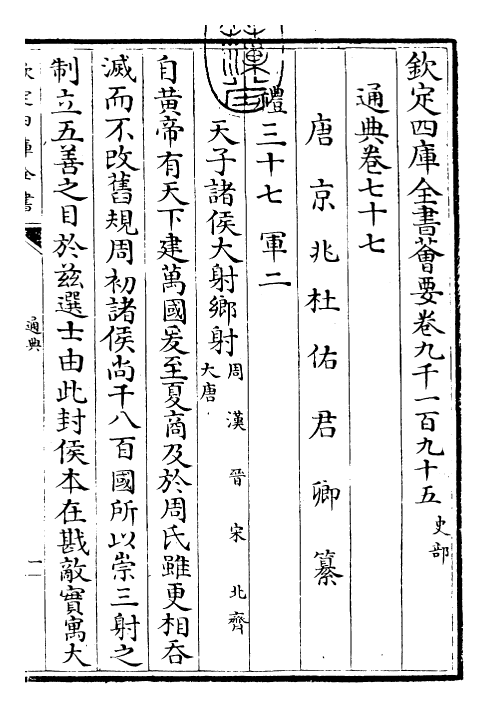 欽定四庫全書薈要卷九千一百九十五 史部
通典卷七十七
唐京兆杜佑君卿纂
禮三十七 軍二
天子諸侯大射鄉射 周 漢 晉 宋 北齊
大唐
自黃帝有天下建萬國爰至夏商及於周氏雖更相吞
滅而不改舊規周初諸侯尚千八百國所以崇三射之
制立五善之目於茲選士由此封侯本在戡敵實寓大
欽定四庫全書
通典
一